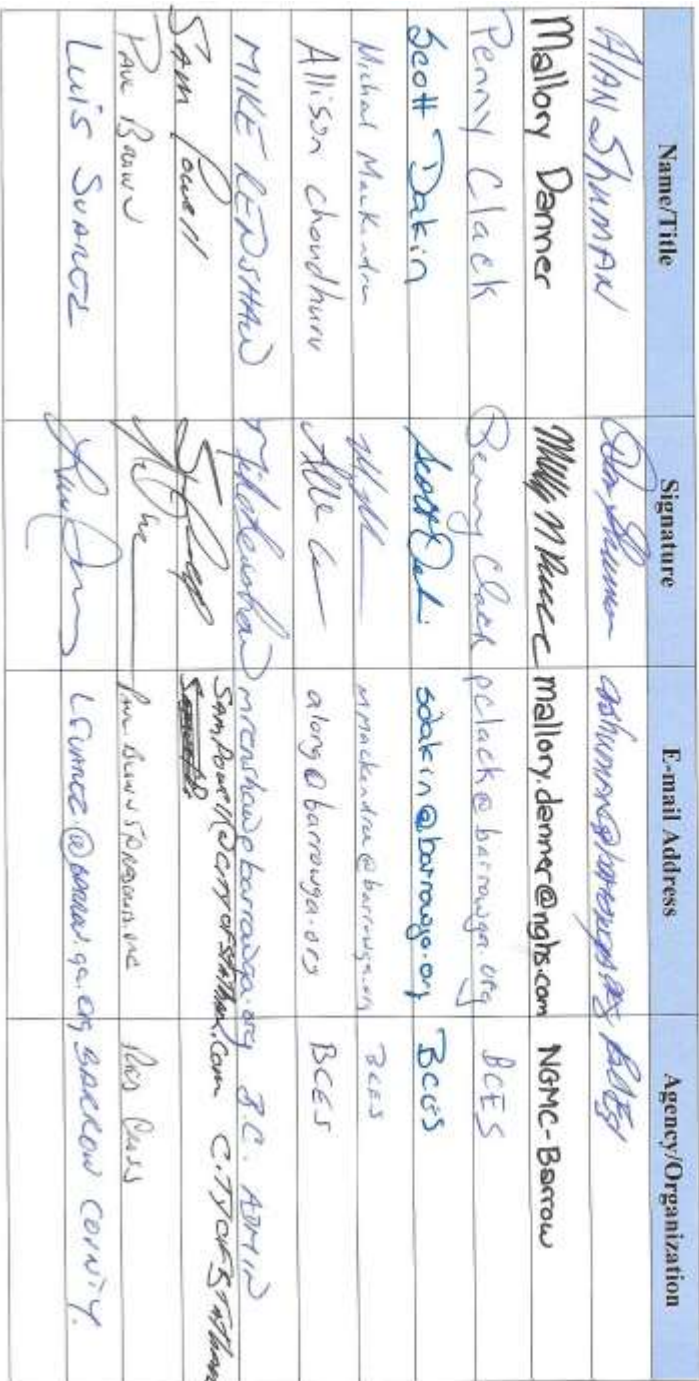 Name/Title Signature E-mail Address Agency/Organization
Alan Shuman Alan Shuman BCES
Mallory Danner mallory.danner@nghs.com NGMC-Barrow
Penny Clack Penny Clack pclack@barrowga.org BCES
Scott Dakin Scott Dakin sdakin@barrowga.org BCES
Michael MacKendree mmackendree@barrowga.org BCES
Allison Choudhury along@barrowga.org BCES
MIKE RENSHAW mrenshaw@barrowga.org B.C. ADMIN
Sam Powell SamPowell@cityofstatham.com City of Statham
Paul Brown Red Cross
Luis Suarez BARROW COUNTY.